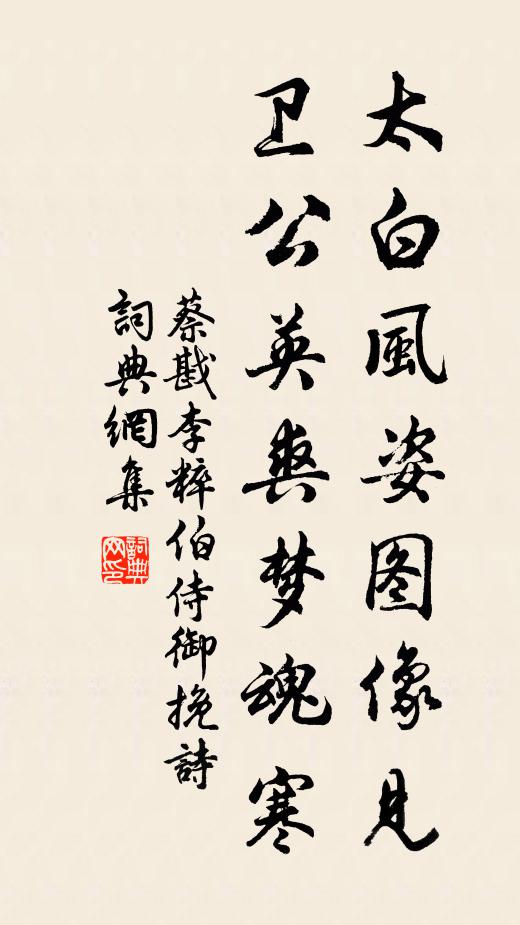 太白風姿图像见
卫公英爽梦魂寒
蔡戡李粹伯侍御挽詩
詞典網集
詞典网印